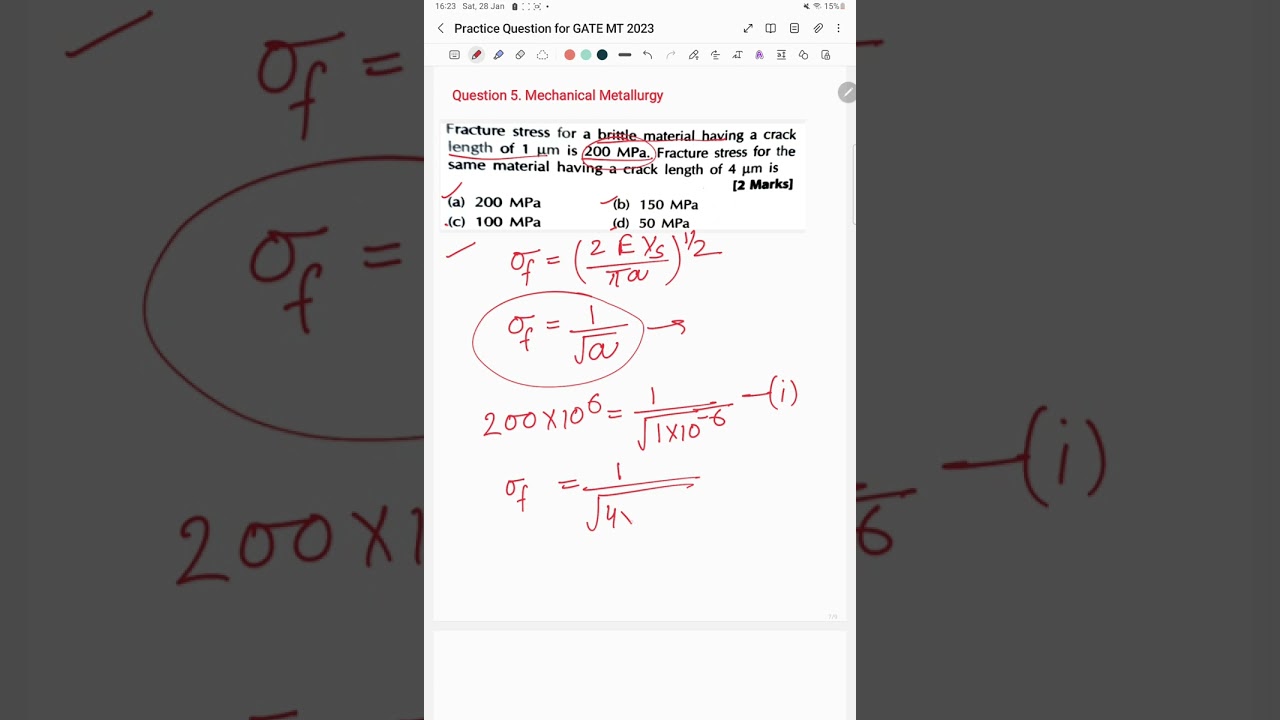 16:23 Sat, 28 Jan
15%
Practice Question for GATE MT 2023
Question 5. Mechanical Metallurgy
Fracture stress for a brittle material having a crack
length of 1 μm is 200 MPa. Fracture stress for the
same material having a crack length of 4 μm is
[2 Marks]
(a) 200 MPa (b) 150 MPa
(c) 100 MPa (d) 50 MPa
σf = (2 E γs / πa)^1/2
σf = 1/√a →
200×10^6 = 1/√1×10^-6 —(i)
σf = 1/√4×
σf =
σf =
200×1
6 —(i)